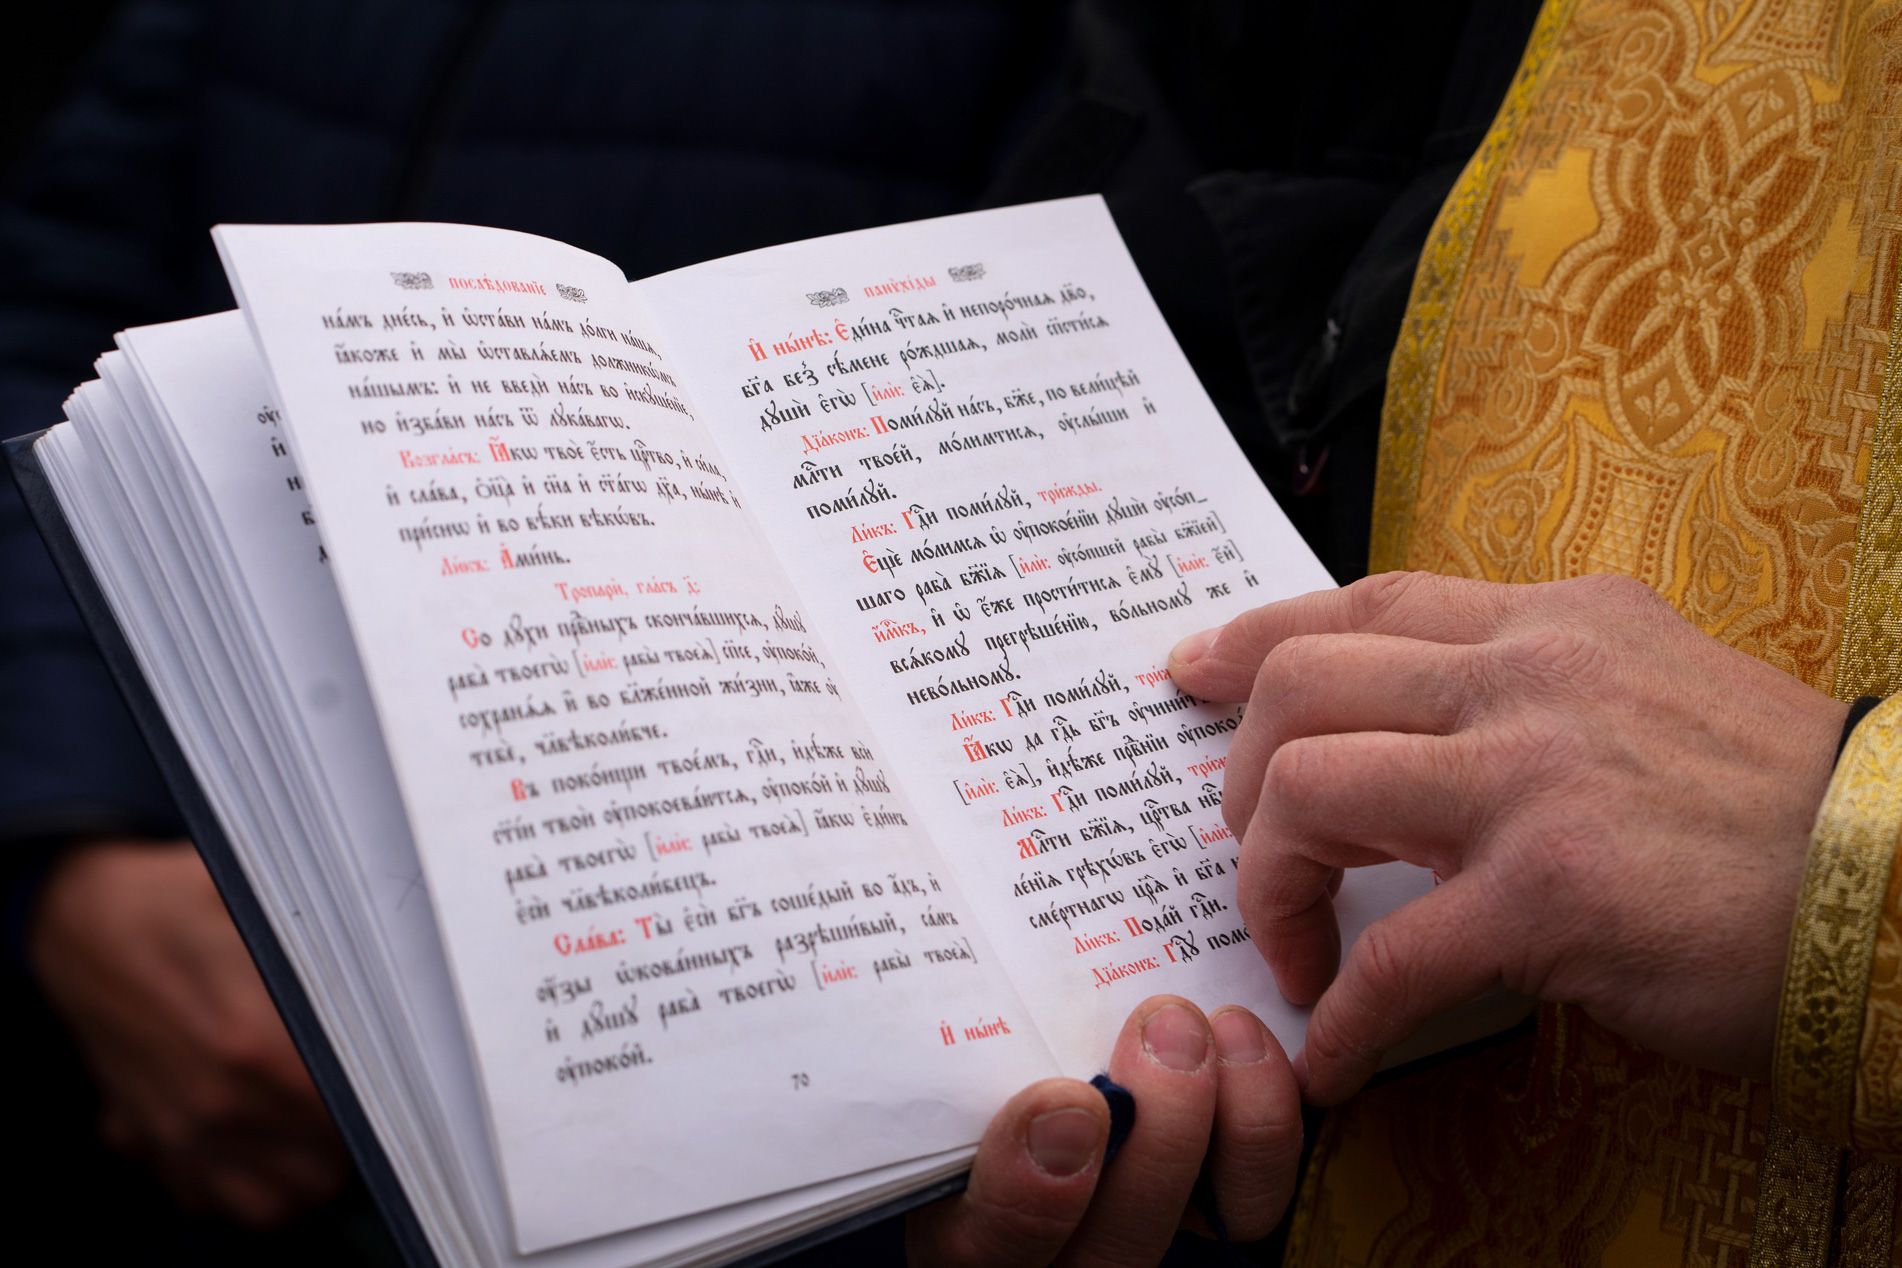 послѣ́дованїе
на́мъ дне́сь, и҆ ѡ҆ста́ви на́мъ до́лги на́шѧ,
ꙗ҆́коже и҆ мы̀ ѡ҆ставлѧ́емъ должникѡ́мъ
на́шымъ: и҆ не введѝ на́съ во и҆скꙋше́нїе,
но и҆зба́ви на́съ ѿ лꙋка́вагѡ.
Возгла́съ: Ꙗ҆́кѡ твоѐ є҆́сть црⷭ҇тво, и҆ си́ла,
и҆ сла́ва, ѻ҆ц҃а̀ и҆ сн҃а и҆ ст҃а́гѡ дх҃а, ны́нѣ и҆
при́снѡ и҆ во вѣ́ки вѣкѡ́въ.
Ли́къ: А҆ми́нь.
Тропари̑, гла́съ д҃:
Со дꙋ́хи првⷣныхъ сконча́вшихсѧ, дꙋ́шꙋ
раба̀ твоегѡ̀ [и҆лѝ: рабы̀ твоеѧ̀] сп҃се, ᲂу҆поко́й,
сохранѧ́ѧ и҆̀ во бл҃же́нной жи́зни, ꙗ҆́же ᲂу҆
тебѐ, чл҃вѣколю́бче.
Въ поко́ищи твое́мъ, гдⷭ҇и, и҆дѣ́же всѝ
ст҃і́и твоѝ ᲂу҆покоева́ютсѧ, ᲂу҆поко́й и҆ дꙋ́шꙋ
раба̀ твоегѡ̀ [и҆лѝ: рабы̀ твоеѧ̀] ꙗ҆́кѡ є҆ди́нъ
є҆сѝ чл҃вѣколю́бецъ.
Сла́ва: Ты̀ є҆сѝ бг҃ъ соше́дый во а҆́дъ, и҆
ᲂу҆́зы ѡ҆кова́нныхъ разрѣши́вый, са́мъ
и҆ дꙋ́шꙋ раба̀ твоегѡ̀ [и҆лѝ: рабы̀ твоеѧ̀]
ᲂу҆поко́й.
И҆ ны́нѣ
70
панѷхі́ды
И҆ ны́нѣ: Є҆ди́на чтⷭ҇аѧ и҆ непоро́чнаѧ дв҃о,
бг҃а без̾ сѣ́мене ро́ждшаѧ, молѝ сп҃сти́сѧ
дꙋшѝ є҆гѡ̀ [и҆лѝ: є҆ѧ̀].
Дїа́конъ: Поми́лꙋй на́съ, бж҃е, по вели́цѣй
млⷭ҇ти твое́й, мо́лимтисѧ, ᲂу҆слы́ши и҆
поми́лꙋй.
Ли́къ: Гдⷭ҇и поми́лꙋй, три́жды.
Є҆щѐ мо́лимсѧ ѡ҆ ᲂу҆покое́нїи дꙋшѝ ᲂу҆со́п_
шаго раба̀ бж҃їѧ [и҆лѝ: ᲂу҆со́пшей рабы̀ бж҃їей]
и҆́м︮к︯ъ, и҆ ѡ҆ є҆́же прости́тисѧ є҆мꙋ̀ [и҆лѝ: є҆́й]
всѧ́комꙋ прегрѣше́нїю, во́льномꙋ же и҆
нево́льномꙋ.
Ли́къ: Гдⷭ҇и поми́лꙋй,
Ꙗ҆́кѡ да гдⷭ҇ь бг҃ъ ᲂу҆чини́тъ
[и҆лѝ: є҆ѧ̀], и҆дѣ́же првⷣнїи
Ли́къ: Гдⷭ҇и поми́лꙋй,
Млⷭ҇ти бж҃їѧ, црⷭ҇тва
ле́нїѧ грѣхѡ́въ є҆гѡ̀ [и҆лѝ:
сме́ртнагѡ цр҃ѧ̀ и҆ бг҃а
Ли́къ: Пода́й гдⷭ҇и.
Дїа́конъ: Гдⷭ҇ꙋ